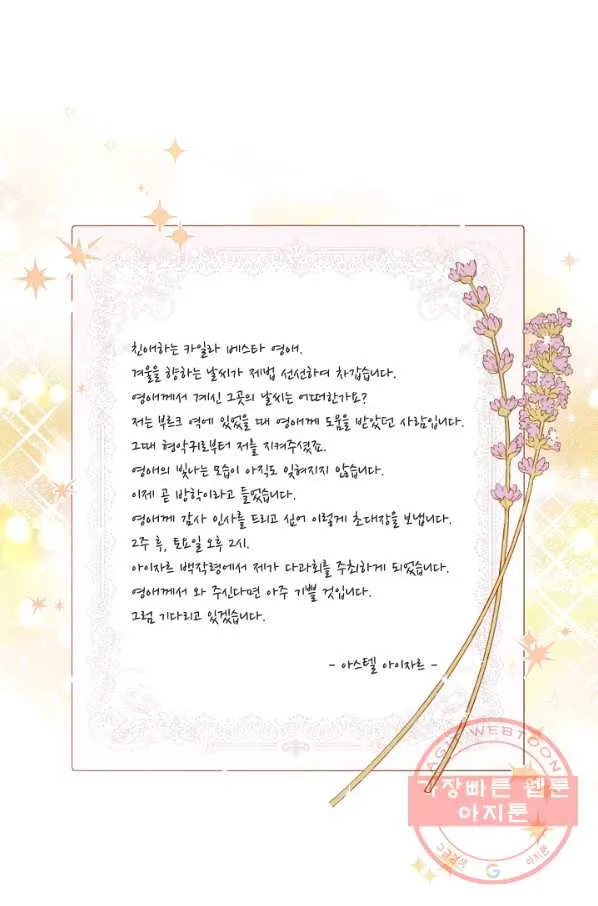 친애하는 카일라 베스타 영애.
겨울을 향하는 날씨가 제법 선선하여 차갑습니다.
영애께서 계신 그곳의 날씨는 어떠한가요?
저는 부르크 역에 있었을 때 영애께 도움을 받았던 사람입니다.
그때 혐악귀로부터 저를 지켜주셨죠.
영애의 빛나는 모습이 아직도 잊혀지지 않습니다.
이제 곧 방학이라고 들었습니다.
영애께 감사 인사를 드리고 싶어 이렇게 초대장을 보냅니다.
2주 후, 토요일 오후 2시.
아이자르 백작령에서 제가 다과회를 주최하게 되었습니다.
영애께서 와 주신다면 아주 기쁠 것입니다.
그럼 기다리고 있겠습니다.
- 아스텔 아이자르 -
AGIT WEBTOON
극장빠른 웹툰
아지툰
구글검색 G 아지툰